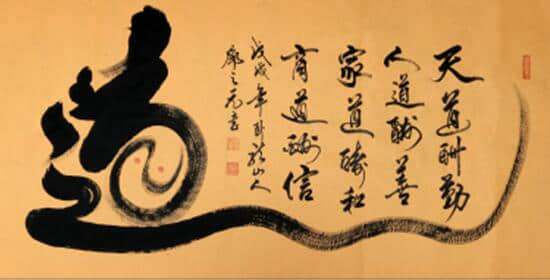 天道酬勤
人道酬善
家道酬和
商道酬信
戊戌年卧龙山人
道